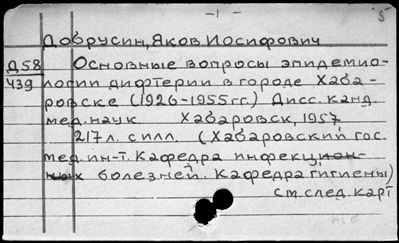 -1-
5
Добрусин, Яков Иосифович
Д58 Основные вопросы эпидемио-
439 логии дифтерии в городе Хаба-
ровске (1926-1955гг.) Дисс. канд.
мед. наук Хабаровск, 1957
217л. с илл. (Хабаровский гос.
мед. ин-т. Кафедра инфекцион-
ных болезней. Кафедра гигиены)
см. след. карт